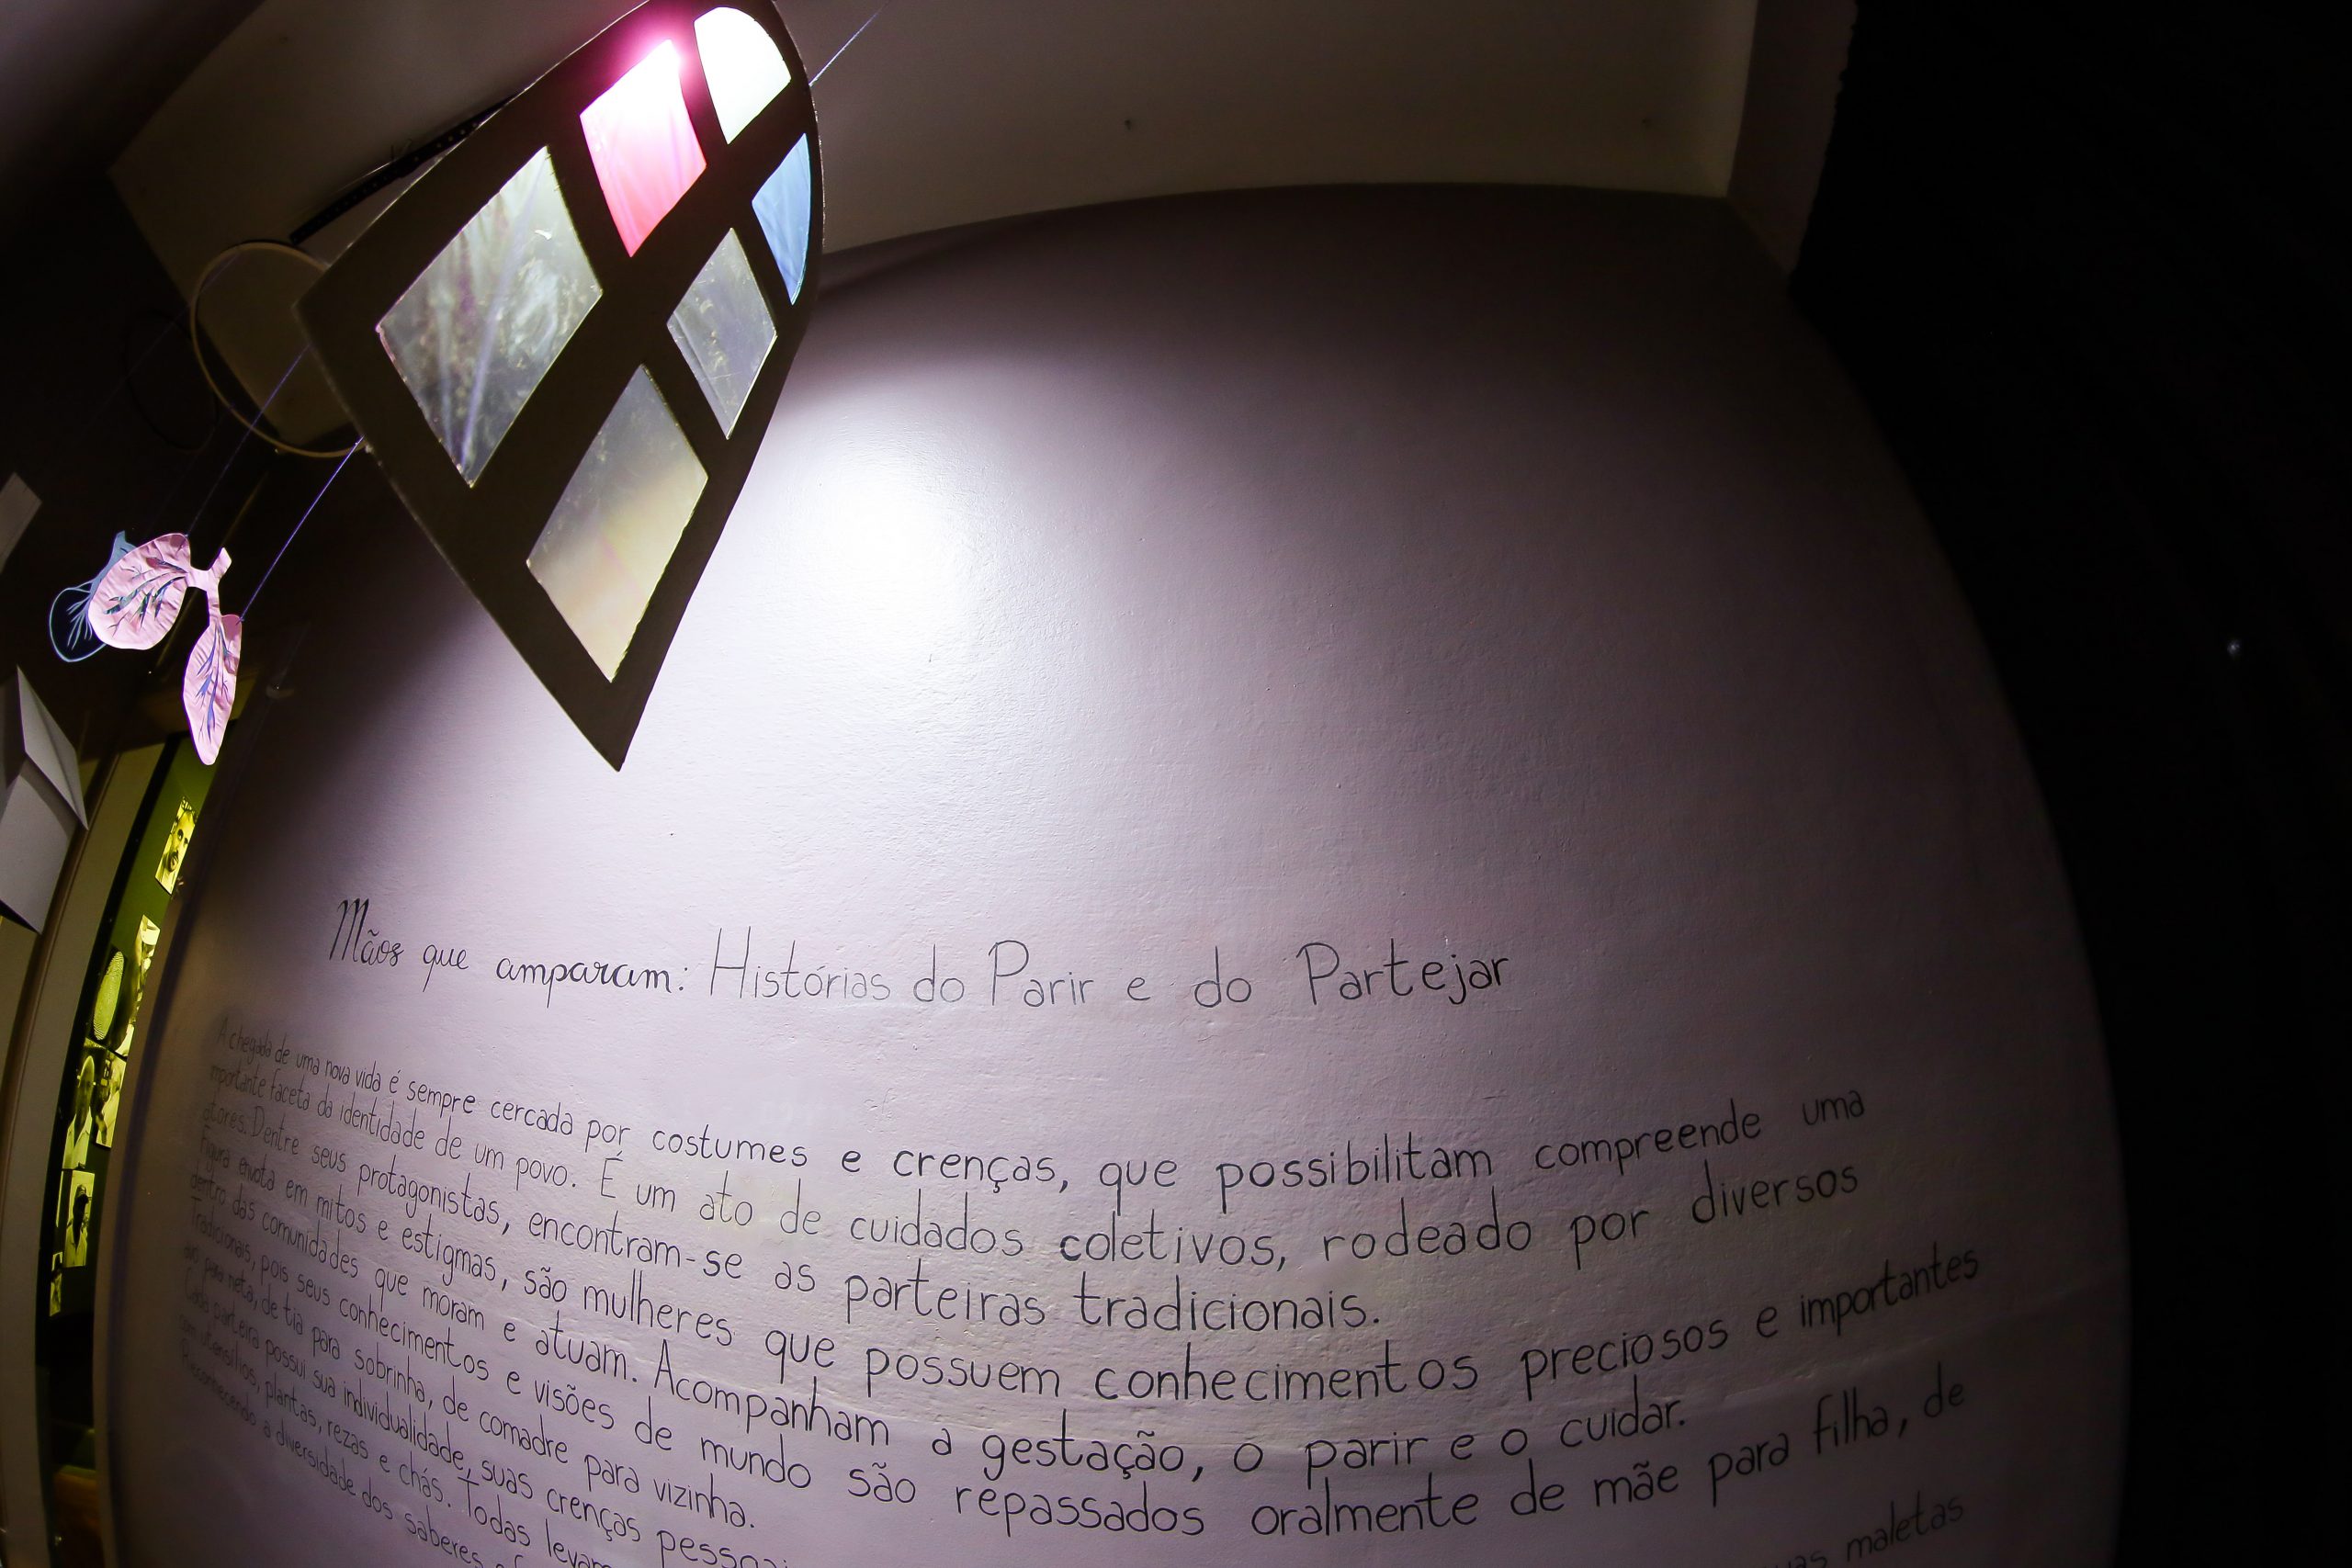 Mãos que amparam: Histórias do Parir e do Partejar
A chegada de uma nova vida é sempre cercada por costumes e crenças, que possibilitam compreende uma
importante faceta da identidade de um povo. É um ato de cuidados coletivos, rodeado por diversos
atores. Dentre seus protagonistas, encontram-se as parteiras tradicionais.
Figura envolta em mitos e estigmas, são mulheres que possuem conhecimentos preciosos e importantes
dentro das comunidades que moram e atuam. Acompanham a gestação, o parir e o cuidar.
Tradicionais, pois seus conhecimentos e visões de mundo são repassados oralmente de mãe para filha, de
avó para neta, de tia para sobrinha, de comadre para vizinha.
Cada parteira possui sua individualidade, suas crenças maletas
com utensílios, plantas, rezas e chás. Todas
Reconhecendo a diversidade dos saberes